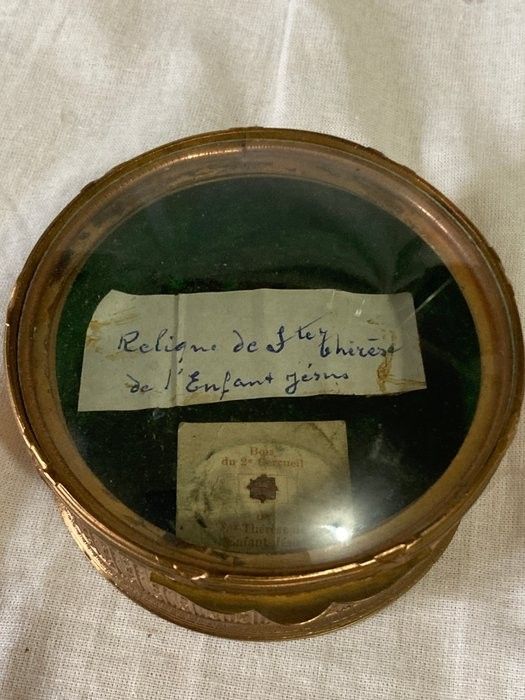 Relique de Ste Thérèse
de l'Enfant Jésus
Bois
du 2e Cercueil
de
Ste Thérèse de
l'Enfant Jésus